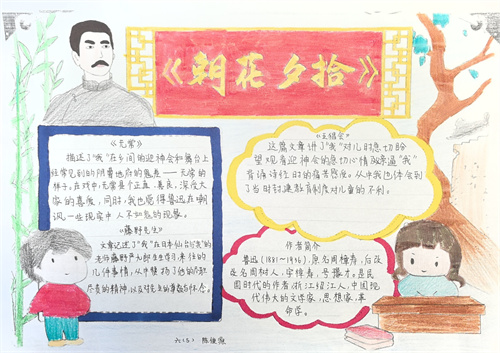 《朝花夕拾》
《无常》
描述了“我”在乡间的迎神会和舞台上
经常见到的阴曹地府的鬼差——无常的
样子,在戏中,无常是个正直、善良,深受大
家的喜爱,同时,我也觉得鲁迅在嘲
讽一些现实中人不如鬼的现象。
《藤野先生》
文章记述了“我”在日本仙台学医的
老师藤野严九郎
几件事情,从中赞扬了他的
尽责的精神,以及对先生的尊敬与怀念。
《五猖会》
这篇文章讲了“我”对儿时急切盼
望观看迎神会的急切心情及被逼“我”
背诵诗经时的痛苦感受。从中我也体会到
了当时封建教育制度对儿童的不利。
作者简介
鲁迅(1881~1936),原名周樟寿,后改
名周树人,字樟寿,号豫才,是民
国时代的作者,浙江绍兴人,中国现
代伟大的文学家、思想家、革
命学。
六(5) 陈